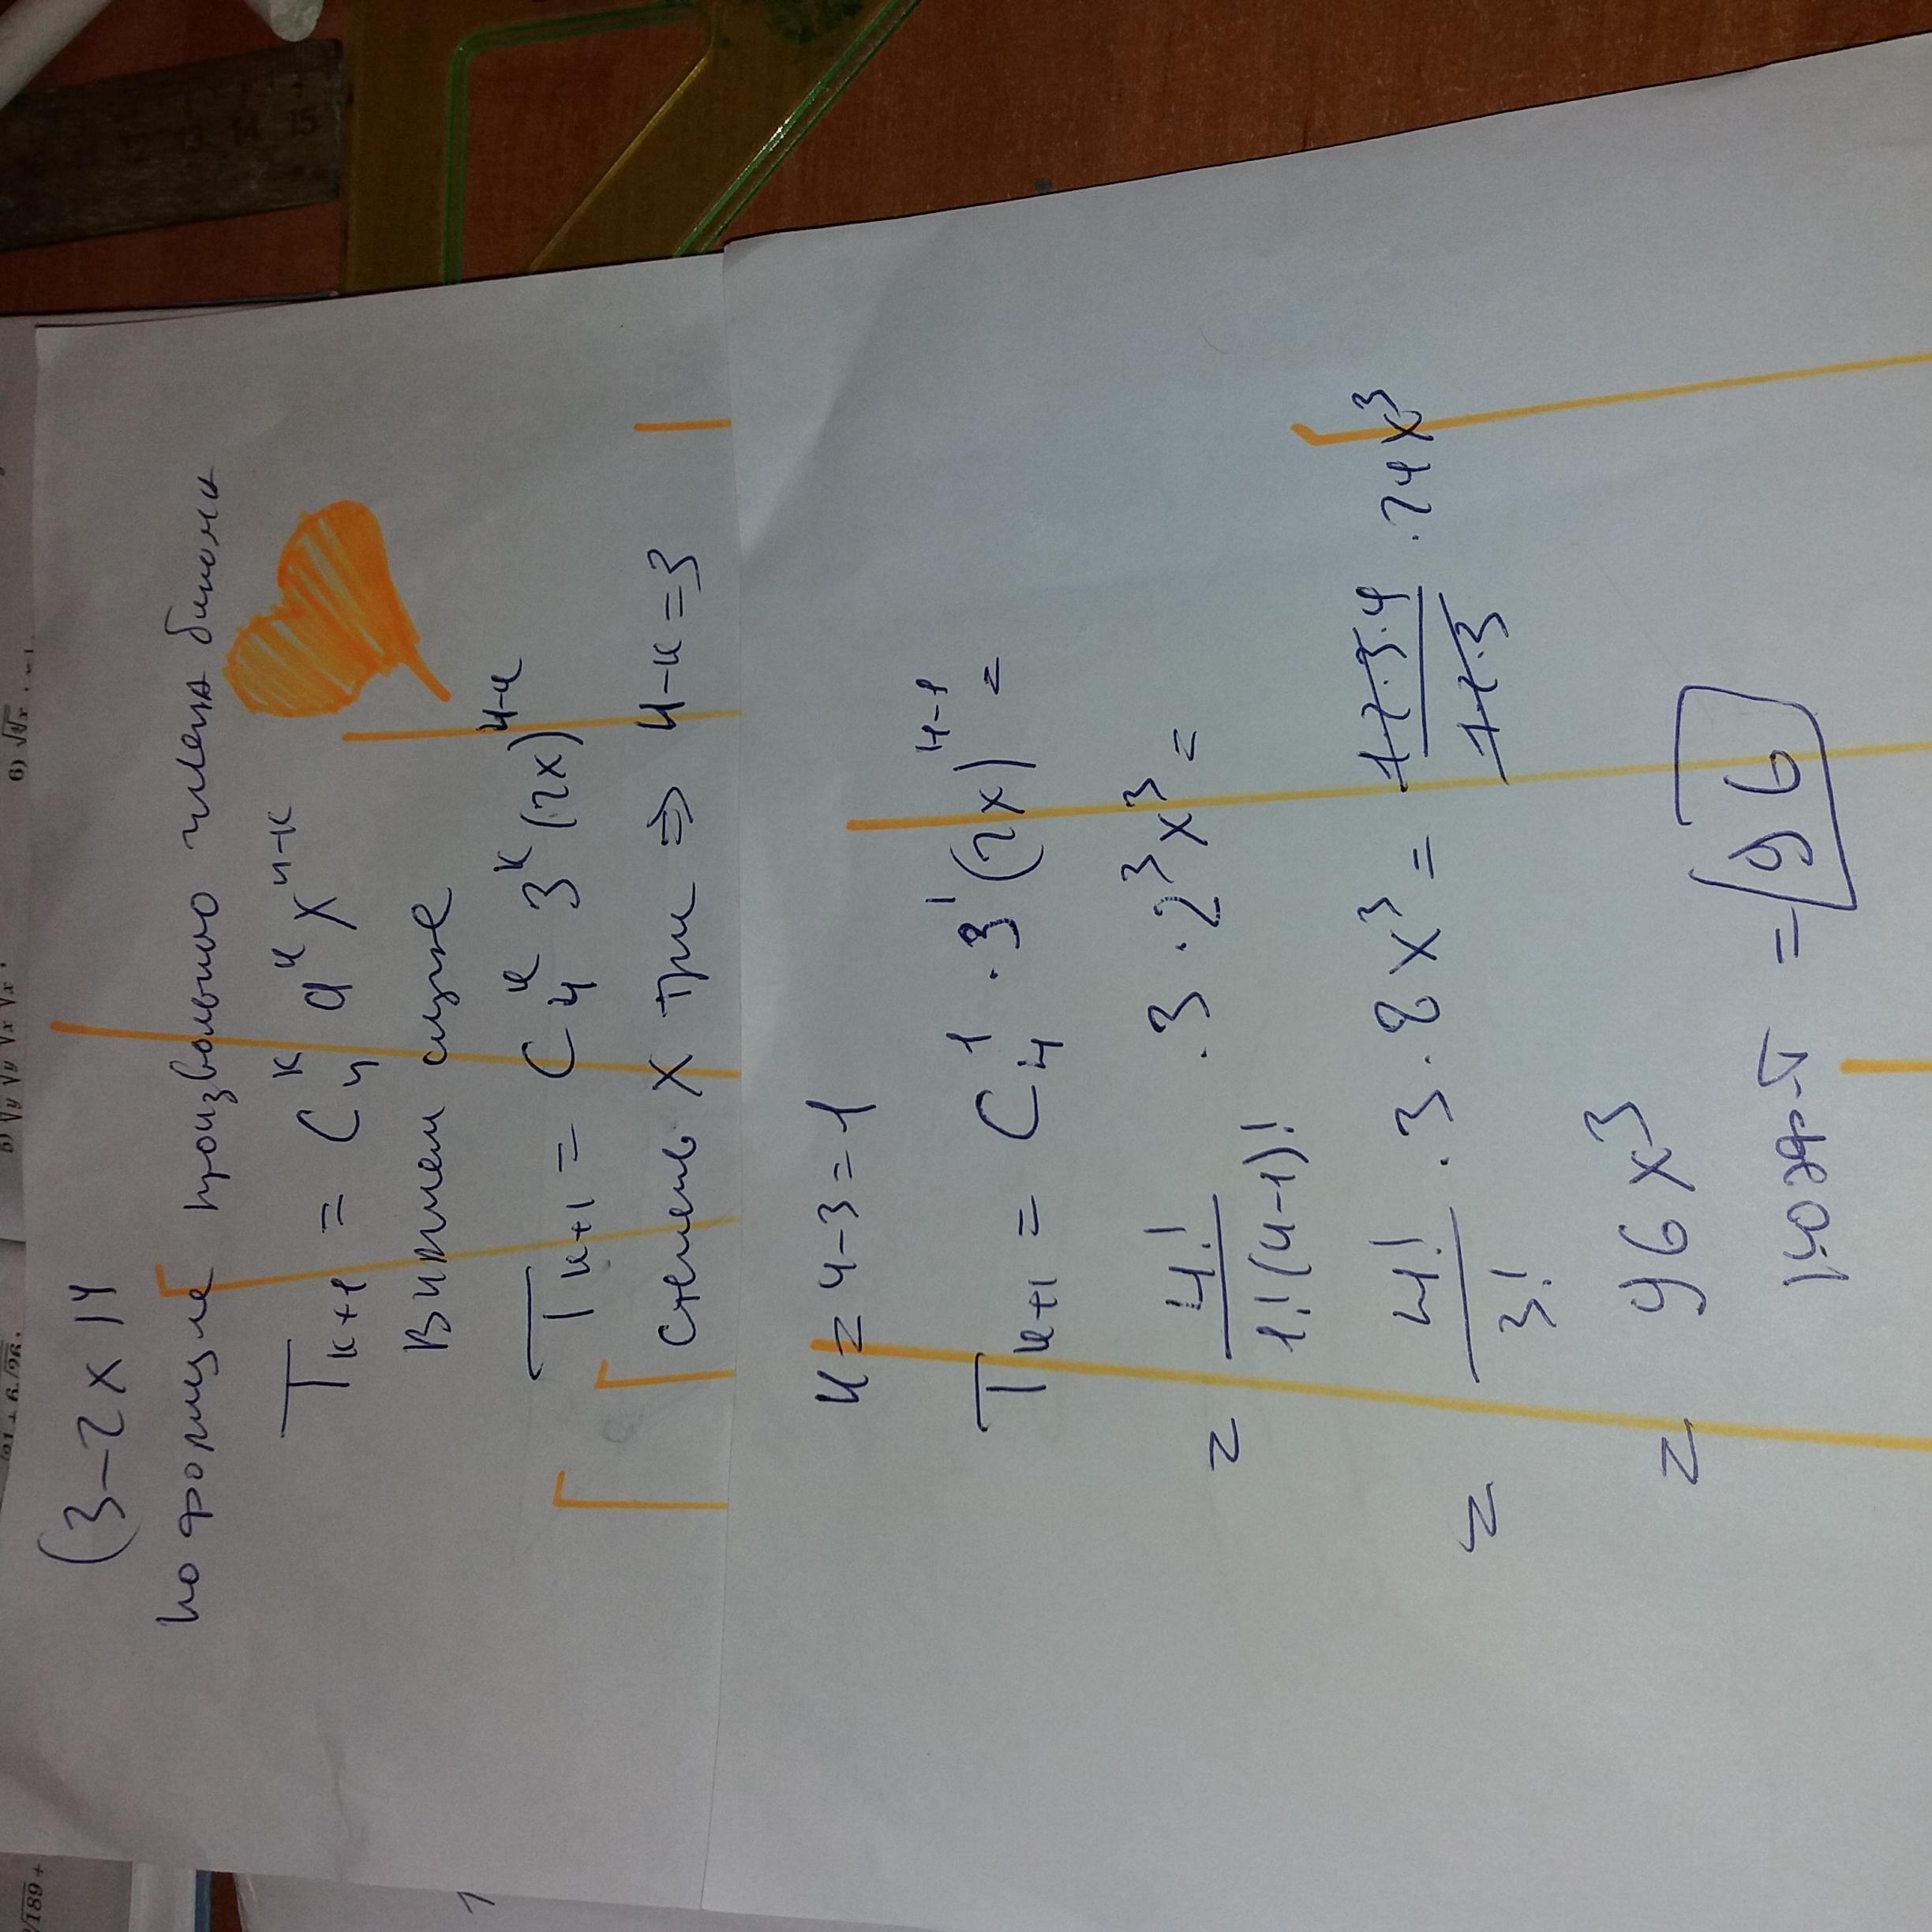 (3-2x)4
по формуле произвольного члена бинома
T k+1 = C 4 k a k x n-k
В интем случае
T k+1 = C 4 k 3 k (2x) 4-k
степень x три ⇒ 4-k=3
k = 4-3=1
T k+1 = C 4 1 · 3 1 (2x) 4-1 =
= 4!/1!(4-1)! · 3 · 2³x³ =
= 4!/3! · 3 · 8x³ = 1·2·3·4/1·2·3 · 24x³
= 96x³
коэф-т = 96
12 13 14 15
6)